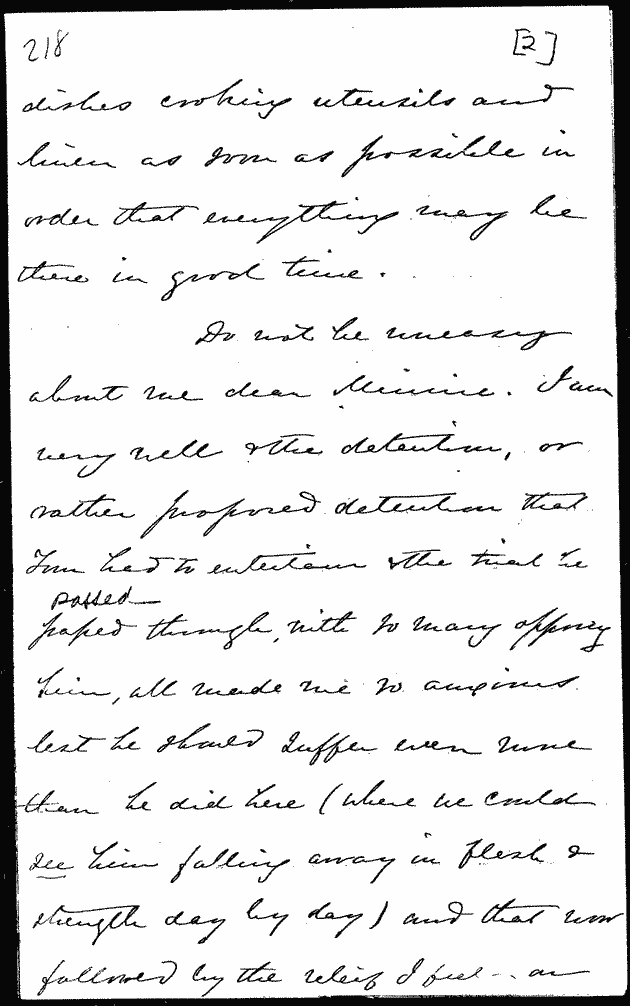 218 [2]
dishes cooking utensils and
linen as soon as possible in
order that everything may be
there in good time.
Do not be uneasy
about me dear Minnie. I am
very well & the detention, or
rather proposed detention that
Tom had to entertain & the trial he
passed
passed through, with so many opposing
him, all made me so anxious
lest he should suffer even more
than he did here (where we could
see him falling away in flesh &
strength day by day) and that now
followed by the relief I feel - an